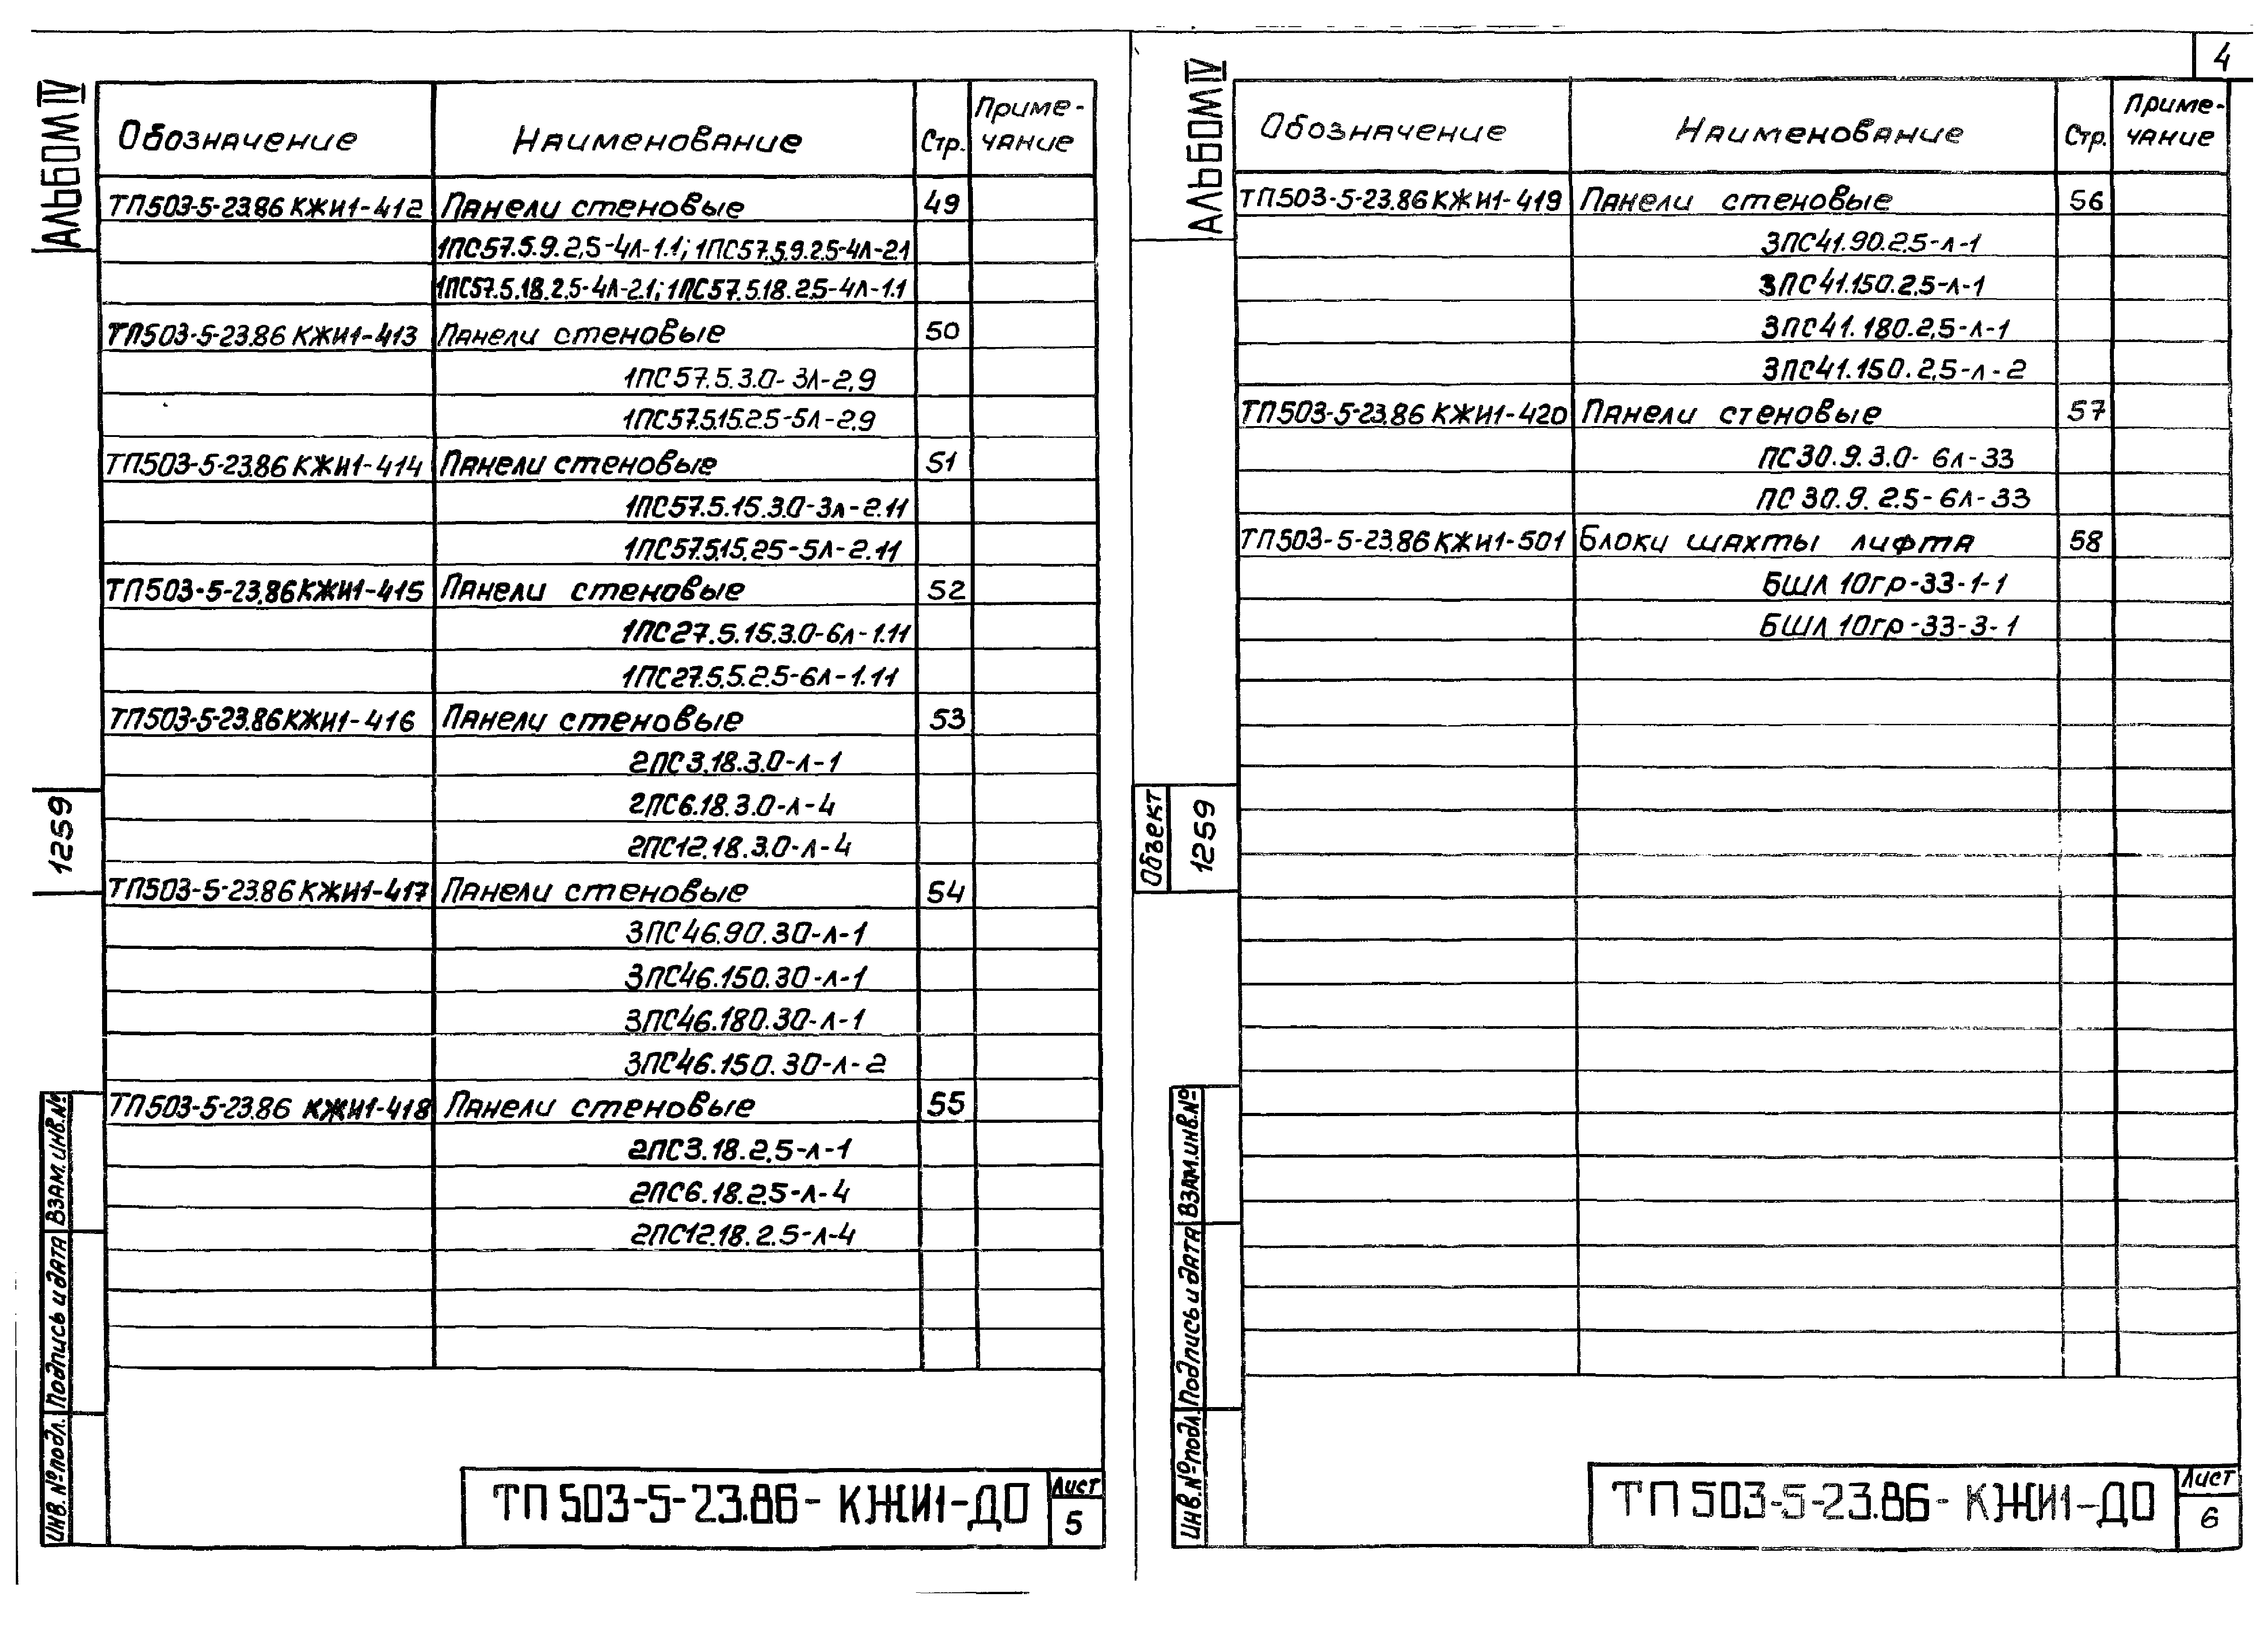 АЛЬБОМ IV
Обозначение Наименование Стр. Приме-
чание
ТП503-5-23.86 КЖИ1-412 Панели стеновые 49
1ПС57.5.9.2,5-4л-1.1; 1ПС57.5.9.2.5-4л-2.1
1ПС57.5.18.2,5-4л-2.1; 1ПС57.5.18.2.5-4л-1.1
ТП503-5-23.86 КЖИ1-413 Панели стеновые 50
1ПС57.5.3.0-3л-2,9
1ПС57.5.15.2.5-5л-2,9
ТП503-5-23.86 КЖИ1-414 Панели стеновые 51
1ПС57.5.15.3.0-3л-2.11
1ПС57.5.15.2.5-5л-2.11
ТП503-5-23.86 КЖИ1-415 Панели стеновые 52
1ПС27.5.15.3.0-6л-1.11
1ПС27.5.5.2.5-6л-1.11
ТП503-5-23.86 КЖИ1-416 Панели стеновые 53
2ПС3.18.3.0-л-1
2ПС6.18.3.0-л-4
2ПС12.18.3.0-л-4
ТП503-5-23.86 КЖИ1-417 Панели стеновые 54
3ПС46.90.30-л-1
3ПС46.150.30-л-1
3ПС46.180.30-л-1
3ПС46.150.30-л-2
ТП503-5-23.86 КЖИ1-418 Панели стеновые 55
2ПС3.18.2.5-л-1
2ПС6.18.2.5-л-4
2ПС12.18.2.5-л-4
1259
Взам.инв.№
Подпись и дата
Инв.№подл.
ТП 503-5-23.86-КЖИ1-ДО Лист
5
4
АЛЬБОМ IV
Обозначение Наименование Стр. Приме-
чание
ТП503-5-23.86 КЖИ1-419 Панели стеновые 56
3ПС41.90.2.5-л-1
3ПС41.150.2.5-л-1
3ПС41.180.2,5-л-1
3ПС41.150.2,5-л-2
ТП503-5-23.86 КЖИ1-420 Панели стеновые 57
ПС30.9.3.0-6л-33
ПС30.9.2.5-6л-33
ТП503-5-23.86 КЖИ1-501 Блоки шахты лифта 58
БШЛ 10гр-33-1-1
БШЛ 10гр-33-3-1
Объект
1259
Взам.инв.№
Подпись и дата
Инв.№подл.
ТП 503-5-23.86-КЖИ1-ДО Лист
6